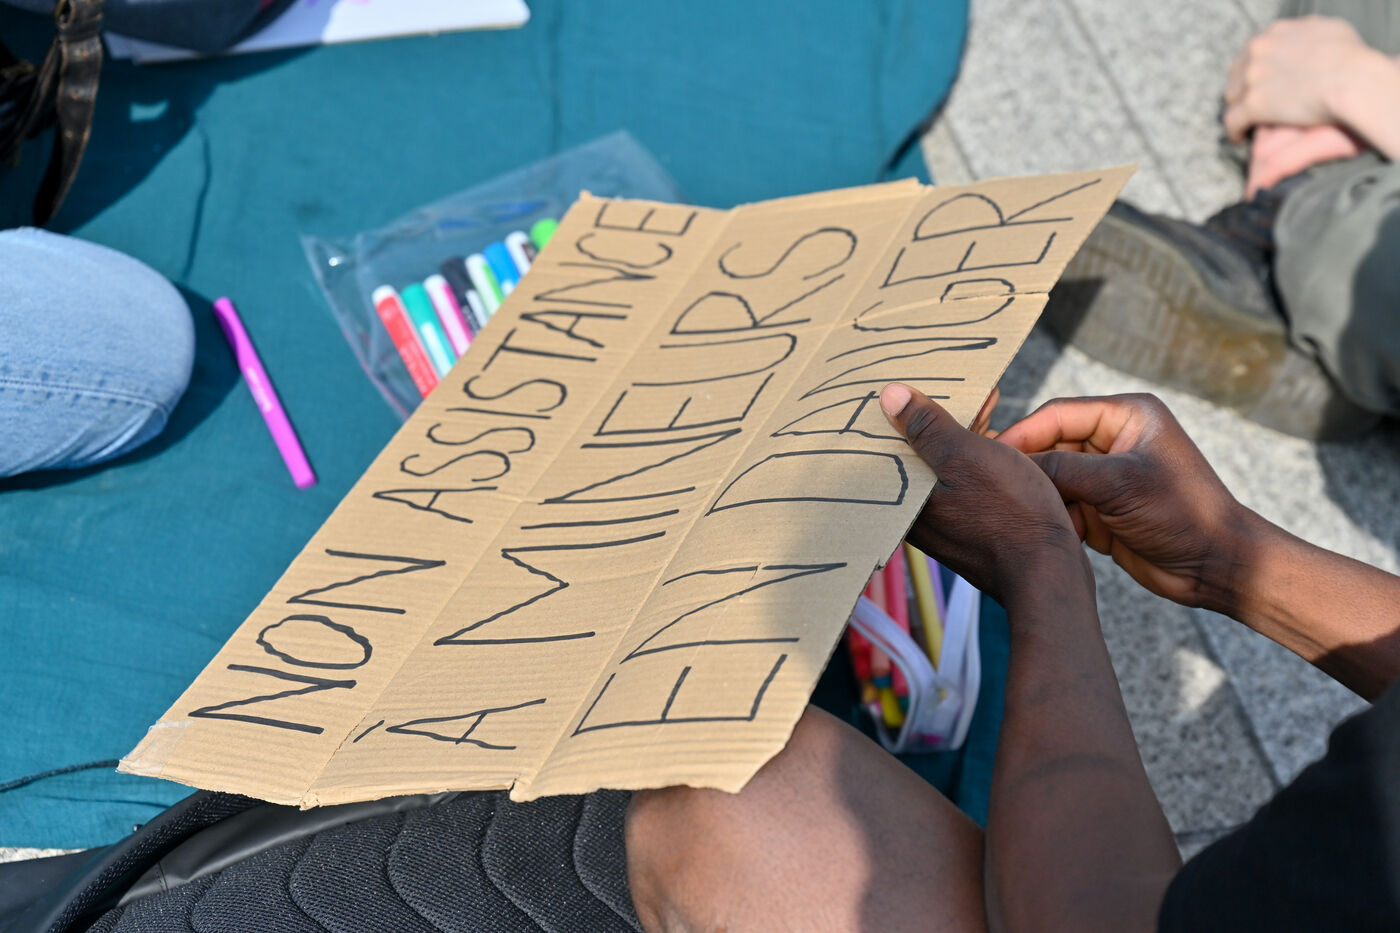 NON ASSISTANCE
À MINEURS
EN DANGER